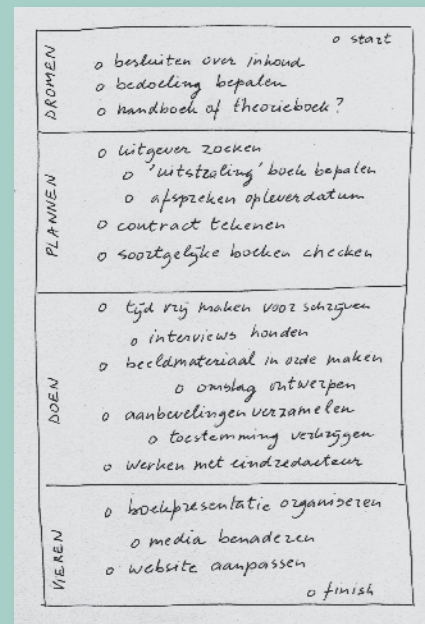 DROMEN
o start
o besluiten over inhoud
o bedoeling bepalen
o handboek of theorieboek?
PLANNEN
o uitgever zoeken
o 'uitstraling' boek bepalen
o afspreken opleverdatum
o contract tekenen
o soortgelijke boeken checken
DOEN
o tijd vrij maken voor schrijven
o interviews houden
o beeldmateriaal in orde maken
o omslag ontwerpen
o aanbevelingen verzamelen
o toestemming verkrijgen
o werken met eindredacteur
VIEREN
o boekpresentatie organiseren
o media benaderen
o website aanpassen
o finish